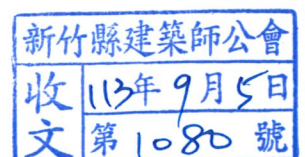 新竹縣建築師公會
收文
113年9月5日
第1080號